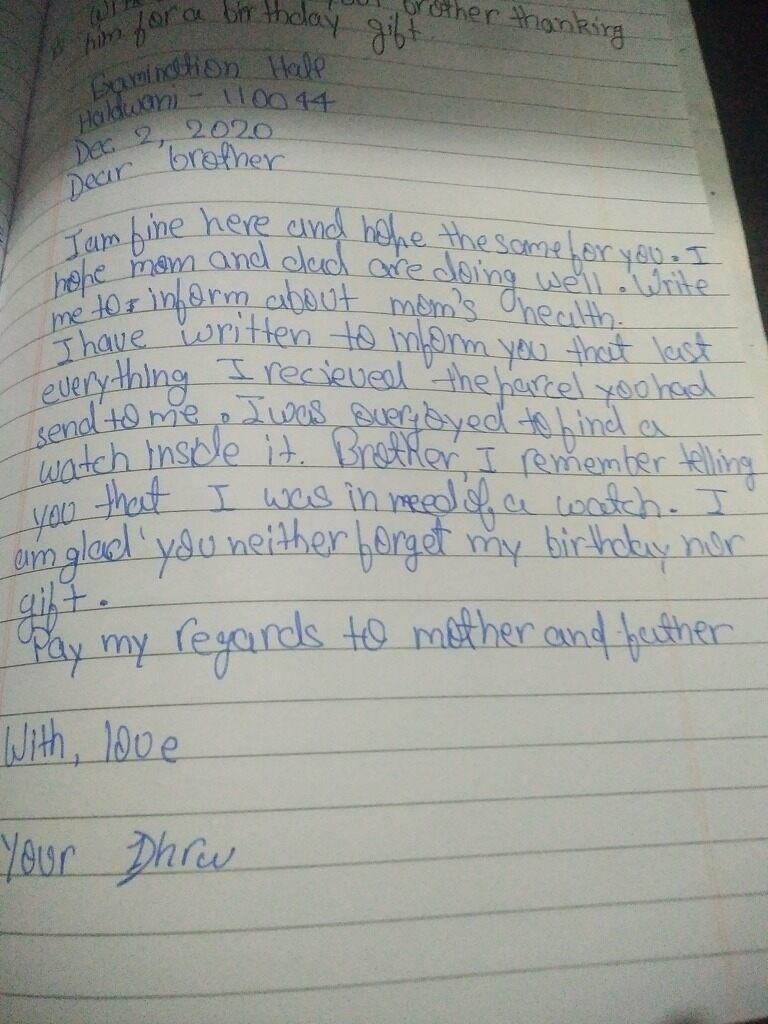 brother thanking
him for a birthday gift
Examination Hall
Haldwani - 110044
Dec 2, 2020
Dear brother
I am fine here and hope the same for you. I
hope mom and dad are doing well. Write
me to inform about mom's health.
I have written to inform you that last
everything I recieved the parcel you had
send to me. I was overjoyed to find a
watch inside it. Brother, I remember telling
you that I was in need of a watch. I
am glad you neither forget my birthday nor
gift.
Pay my regards to mother and father
With, love
Your Dhruv